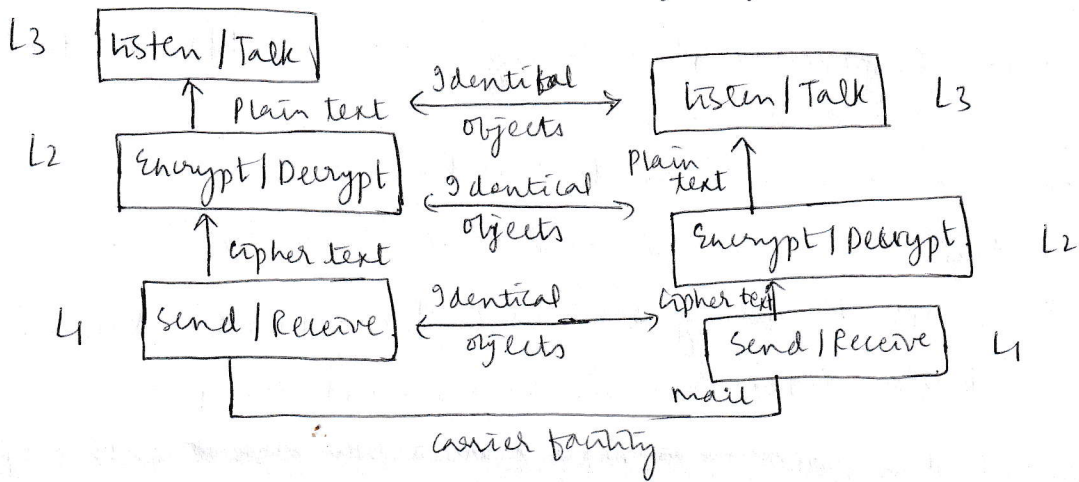 L3
Listen / Talk
Plain text
Identical
objects
Listen / Talk
L3
L2
Encrypt / Decrypt
Identical
objects
Plain
text
Encrypt / Decrypt
L2
Cipher text
Cipher text
L1
Send / Receive
Identical
objects
Send / Receive
L1
mail
carrier facility